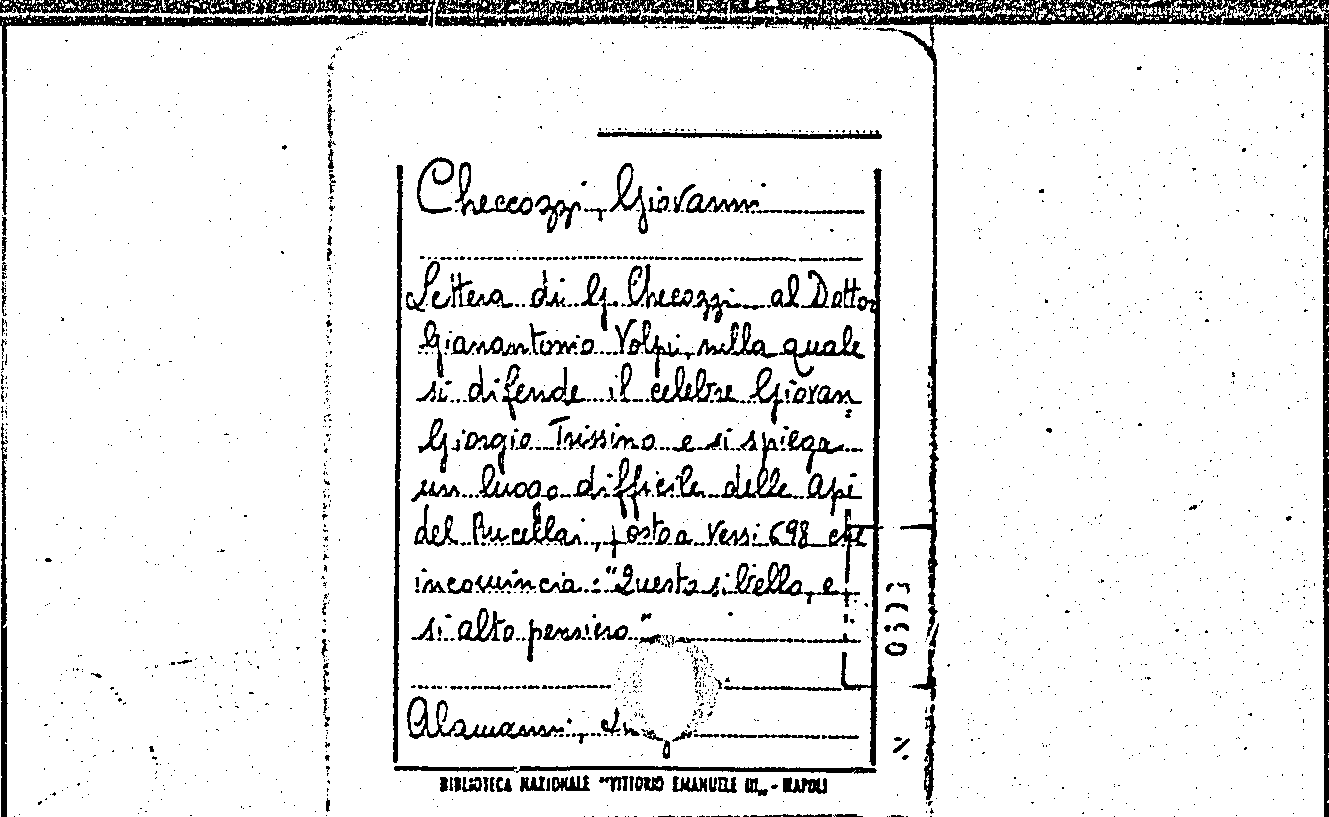 Checcozzi, Giovanni
Lettera di G. Checozzi al Dottor
Gianantonio Volpi, nella quale
si difende il celebre Giovan
Giorgio Trissino e si spiega
un luogo difficile delle Api
del Rucellai, posto a versi 698 che
incomincia: "Questo si bello, e
si alto pensiero"
Alamanni,
BIBLIOTECA NAZIONALE "VITTORIO EMANUELE III" - NAPOLI